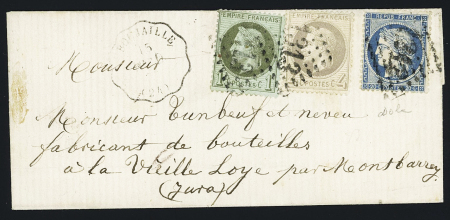 EMPIRE FRANÇAIS
EMPIRE FRANÇAIS
REPUB. FRANC.
POSTES
Monsieur
Monsieur Tunbeuf et neveu
fabricant de bouteilles
à la Vieille Loye par Montbarrey
(Jura)